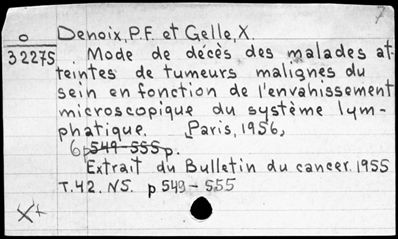 Denoix, P.F. et Gelle, X.
o
32275
. Mode de décès des malades at-
teintes de tumeurs malignes du
sein en fonction de l'envahissement
microscopique du système lym-
phatique. Paris, 1956,
6p 549-555 p.
Extrait du Bulletin du cancer. 1955
T.42. N5. p 549-555